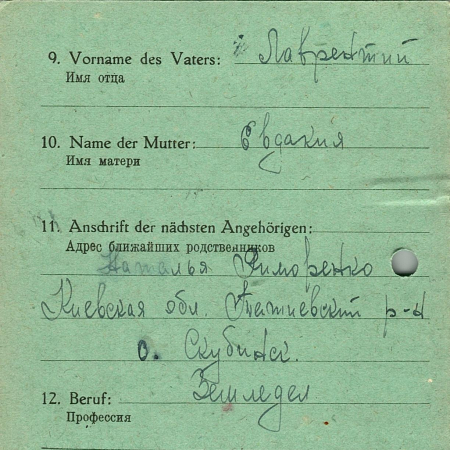 9. Vorname des Vaters: Лаврентий
Имя отца
10. Name der Mutter: Евдакия
Имя матери
11. Anschrift der nächsten Angehörigen:
Адрес ближайших родственников
Наталья
Киевская обл. р-н
с.
12. Beruf: Земледел
Профессия